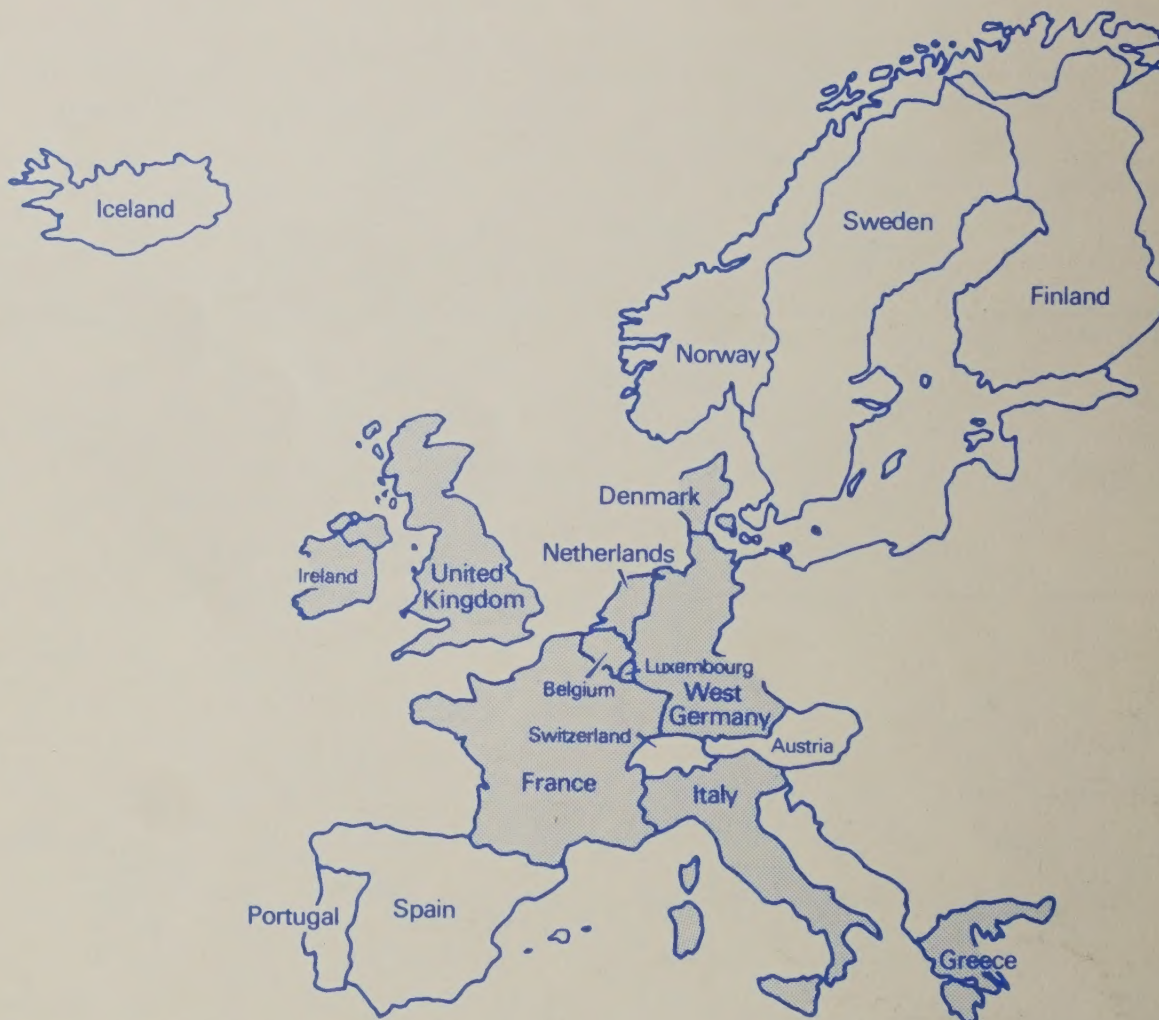 Iceland
Sweden
Finland
Norway
Denmark
Netherlands
Ireland
United
Kingdom
Luxembourg
Belgium
West
Germany
Switzerland
Austria
France
Italy
Portugal
Spain
Greece